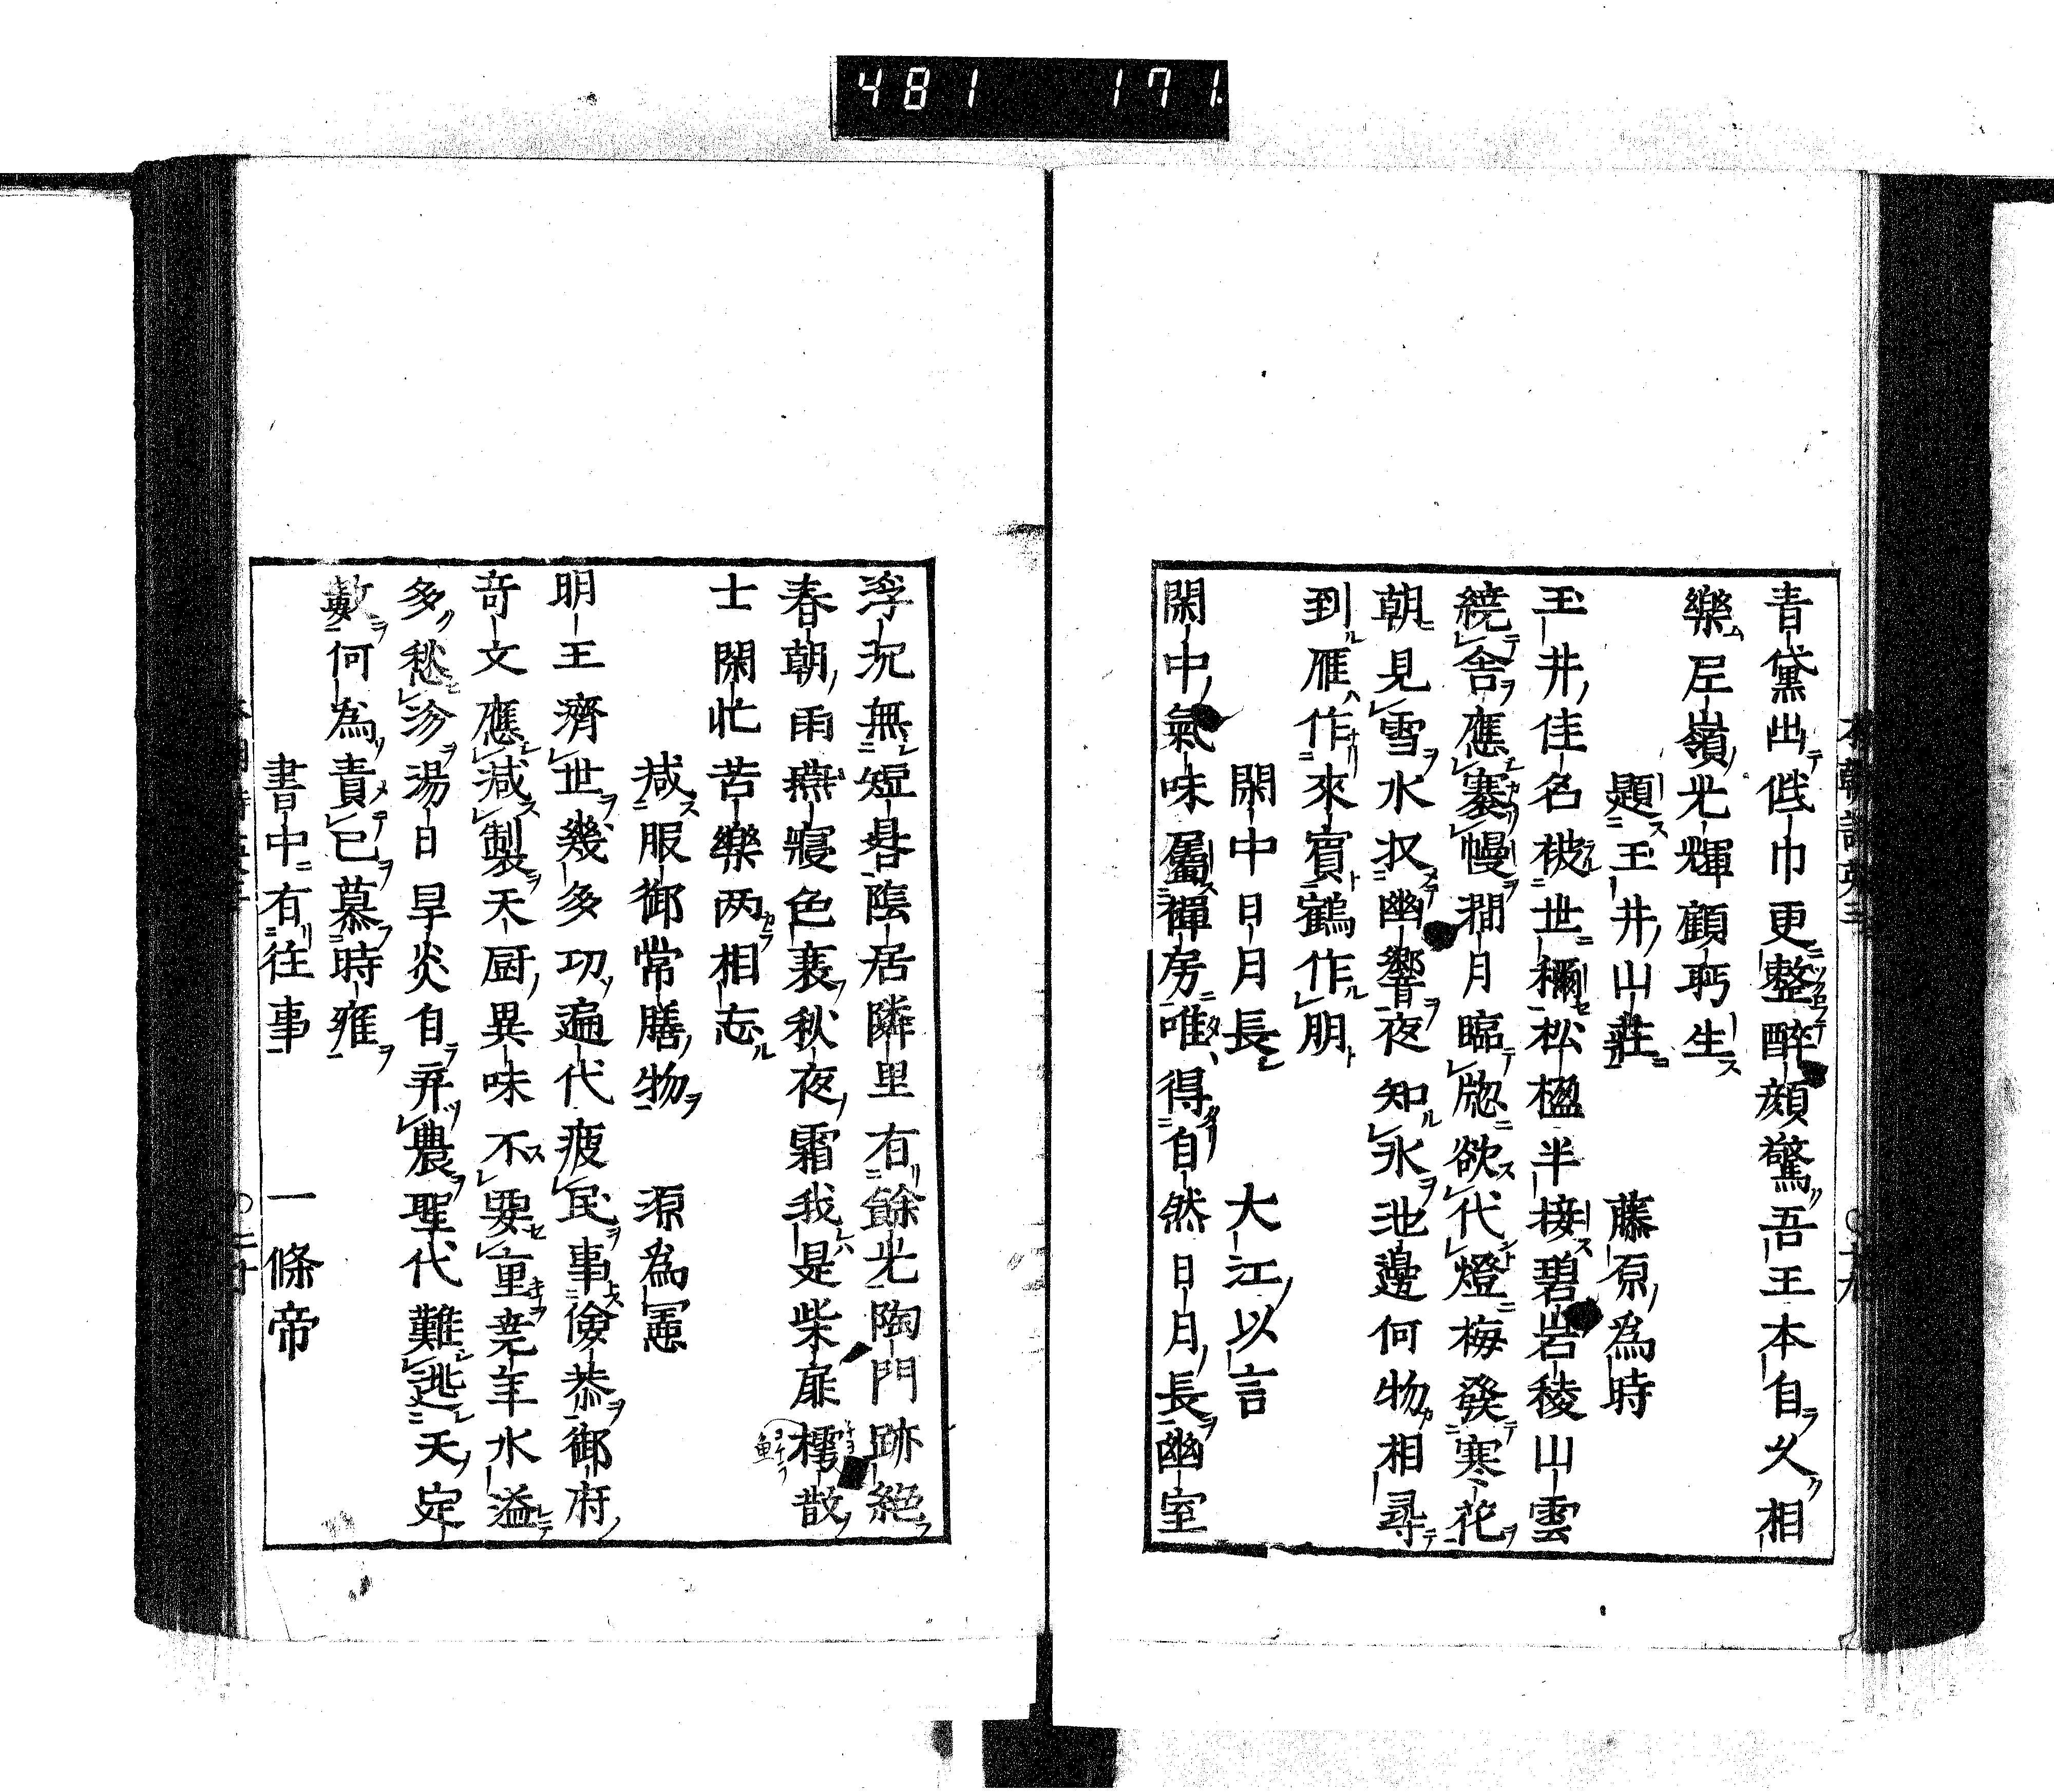 481 171.
青黛出俄巾更整醉顔驚吾王本自乂相
樂左嶺光輝顧眄生
題玉井山荘 藤原為時
玉井佳名被世稱松楹半接碧岩稜山雲
繞舎應褰幔澗月臨牕欲代燈梅發寒花
朝見雪水収幽響夜知氷池邊何物相尋
到雁作來賓鶴作朋
閑中日月長 大江以言
閑中氣味屬禪房唯得自然日月長幽室
浮沉無短晷陰居隣里有餘光陶門跡絶
春朝雨燕寢色衰秋夜霜我是柴扉樗散
士閑忙苦樂两相忘
減服御常膳物 源為憲
明王濟世幾多功遍代疲民事儉恭御府
奇文應減製天厨異味不要重堯年水溢
多愁汾湯日旱炎自弃農聖代難逃天定
數何為責已慕時雍
書中有往事 一條帝